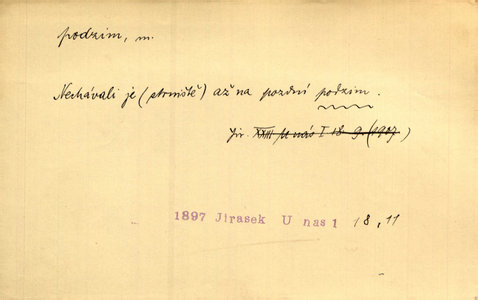 podzim, m.
Nechávali je (strniště) až na pozdní podzim.
Jir. XXIII U nás I 18 9. (1907)
1897 Jirasek U nas 1 18, 11